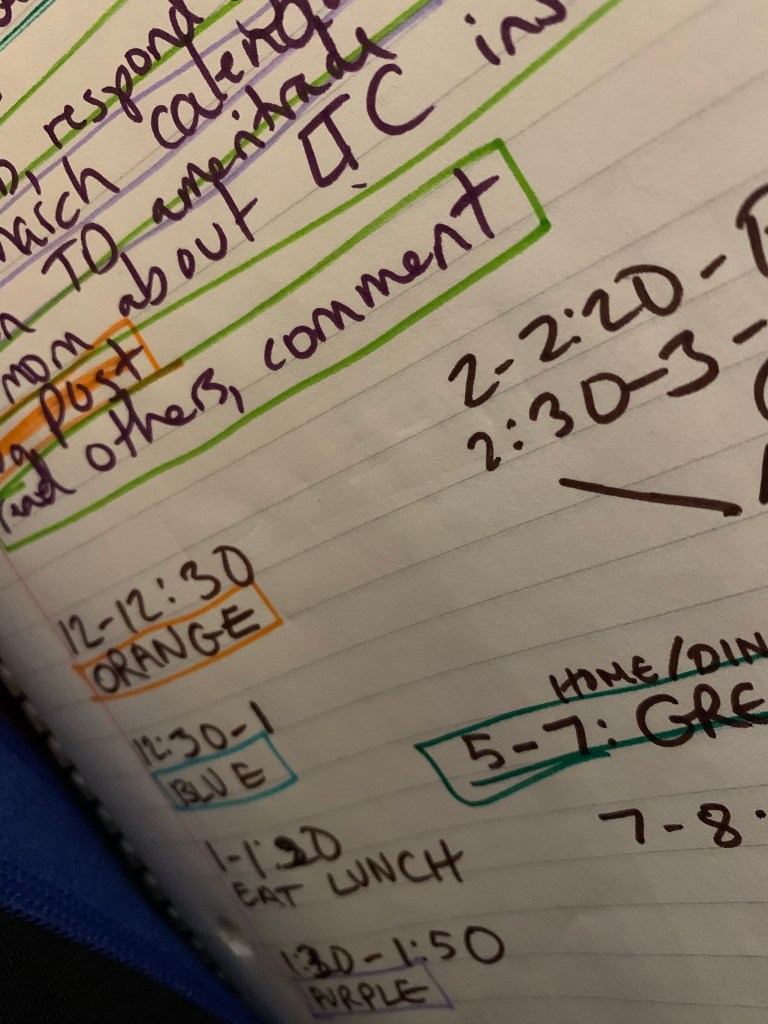 respond
march calend
TD ameritrade
mom about LTC ins
post
and others, comment
2-2:20-
2:30-3-
12-12:30
ORANGE
12:30-1
BLUE
1-1:20
EAT LUNCH
1:30-1:50
PURPLE
HOME/DIN
5-7: GRE
7-8